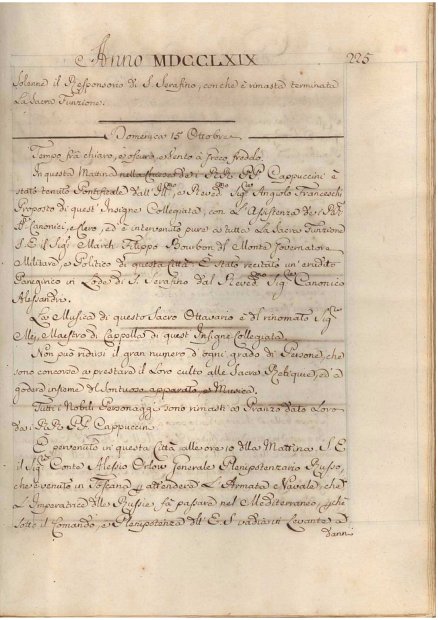 Anno MDCCLXIX 225
Solenne il Responsorio di S. Serafino, con che è rimasta terminata
La Sacra Funzione.
Domenica 15 Ottobre
Tempo frà chiaro, e oscuro, e Vento à freco freddo.
In questa Mattina nella de i PP. Cappuccini è
stato tenuto Pontificale dall' Ill.mo, e Reved.mo Sig.re Angiolo Franceschi
Proposto di quest' Insigne Collegiata, con L'Assistenza de i
Canonici, e Clero, ed è intervenuto pure a tutta La Sacra Funzione
S. E. il Sig.re March. Filippo Bourbon del Monte Governatore
Militare, e Politico di questa Città. È stato recitato un' erudito
Panegirico in Lode di S. Serafino dal Reved.mo Sig.re Canonico
Alessandri.
La Musica di questo Sacro Ottavario è del rinomato Sig.re
Mei, Maestro di Cappella di quest' Insigne Collegiata.
Non può ridirsi il gran numero d'ogni grado di Persone, che
sono concorse a prestare il Loro culto alle Sacre Reliquie, ed a
godere insieme del sontuoso apparato, e Musica.
Tutti i Nobili Personaggi sono rimasti a Pranzo dato Loro
da i PP. Cappuccini.
È pervenuto in questa Città alle ore 10 della Mattina S. E.
il Sig.re Conte Alessio Orlow Generale Plenipotenziario Russo,
che è venuto in Toscana p attendere L'Armata Navale, che
L'Imperatrice delle Russie fà passare nel Mediterraneo, p che
sotto il Comando, e Plenipotenza dell' E. S. vada in Levante a
danni